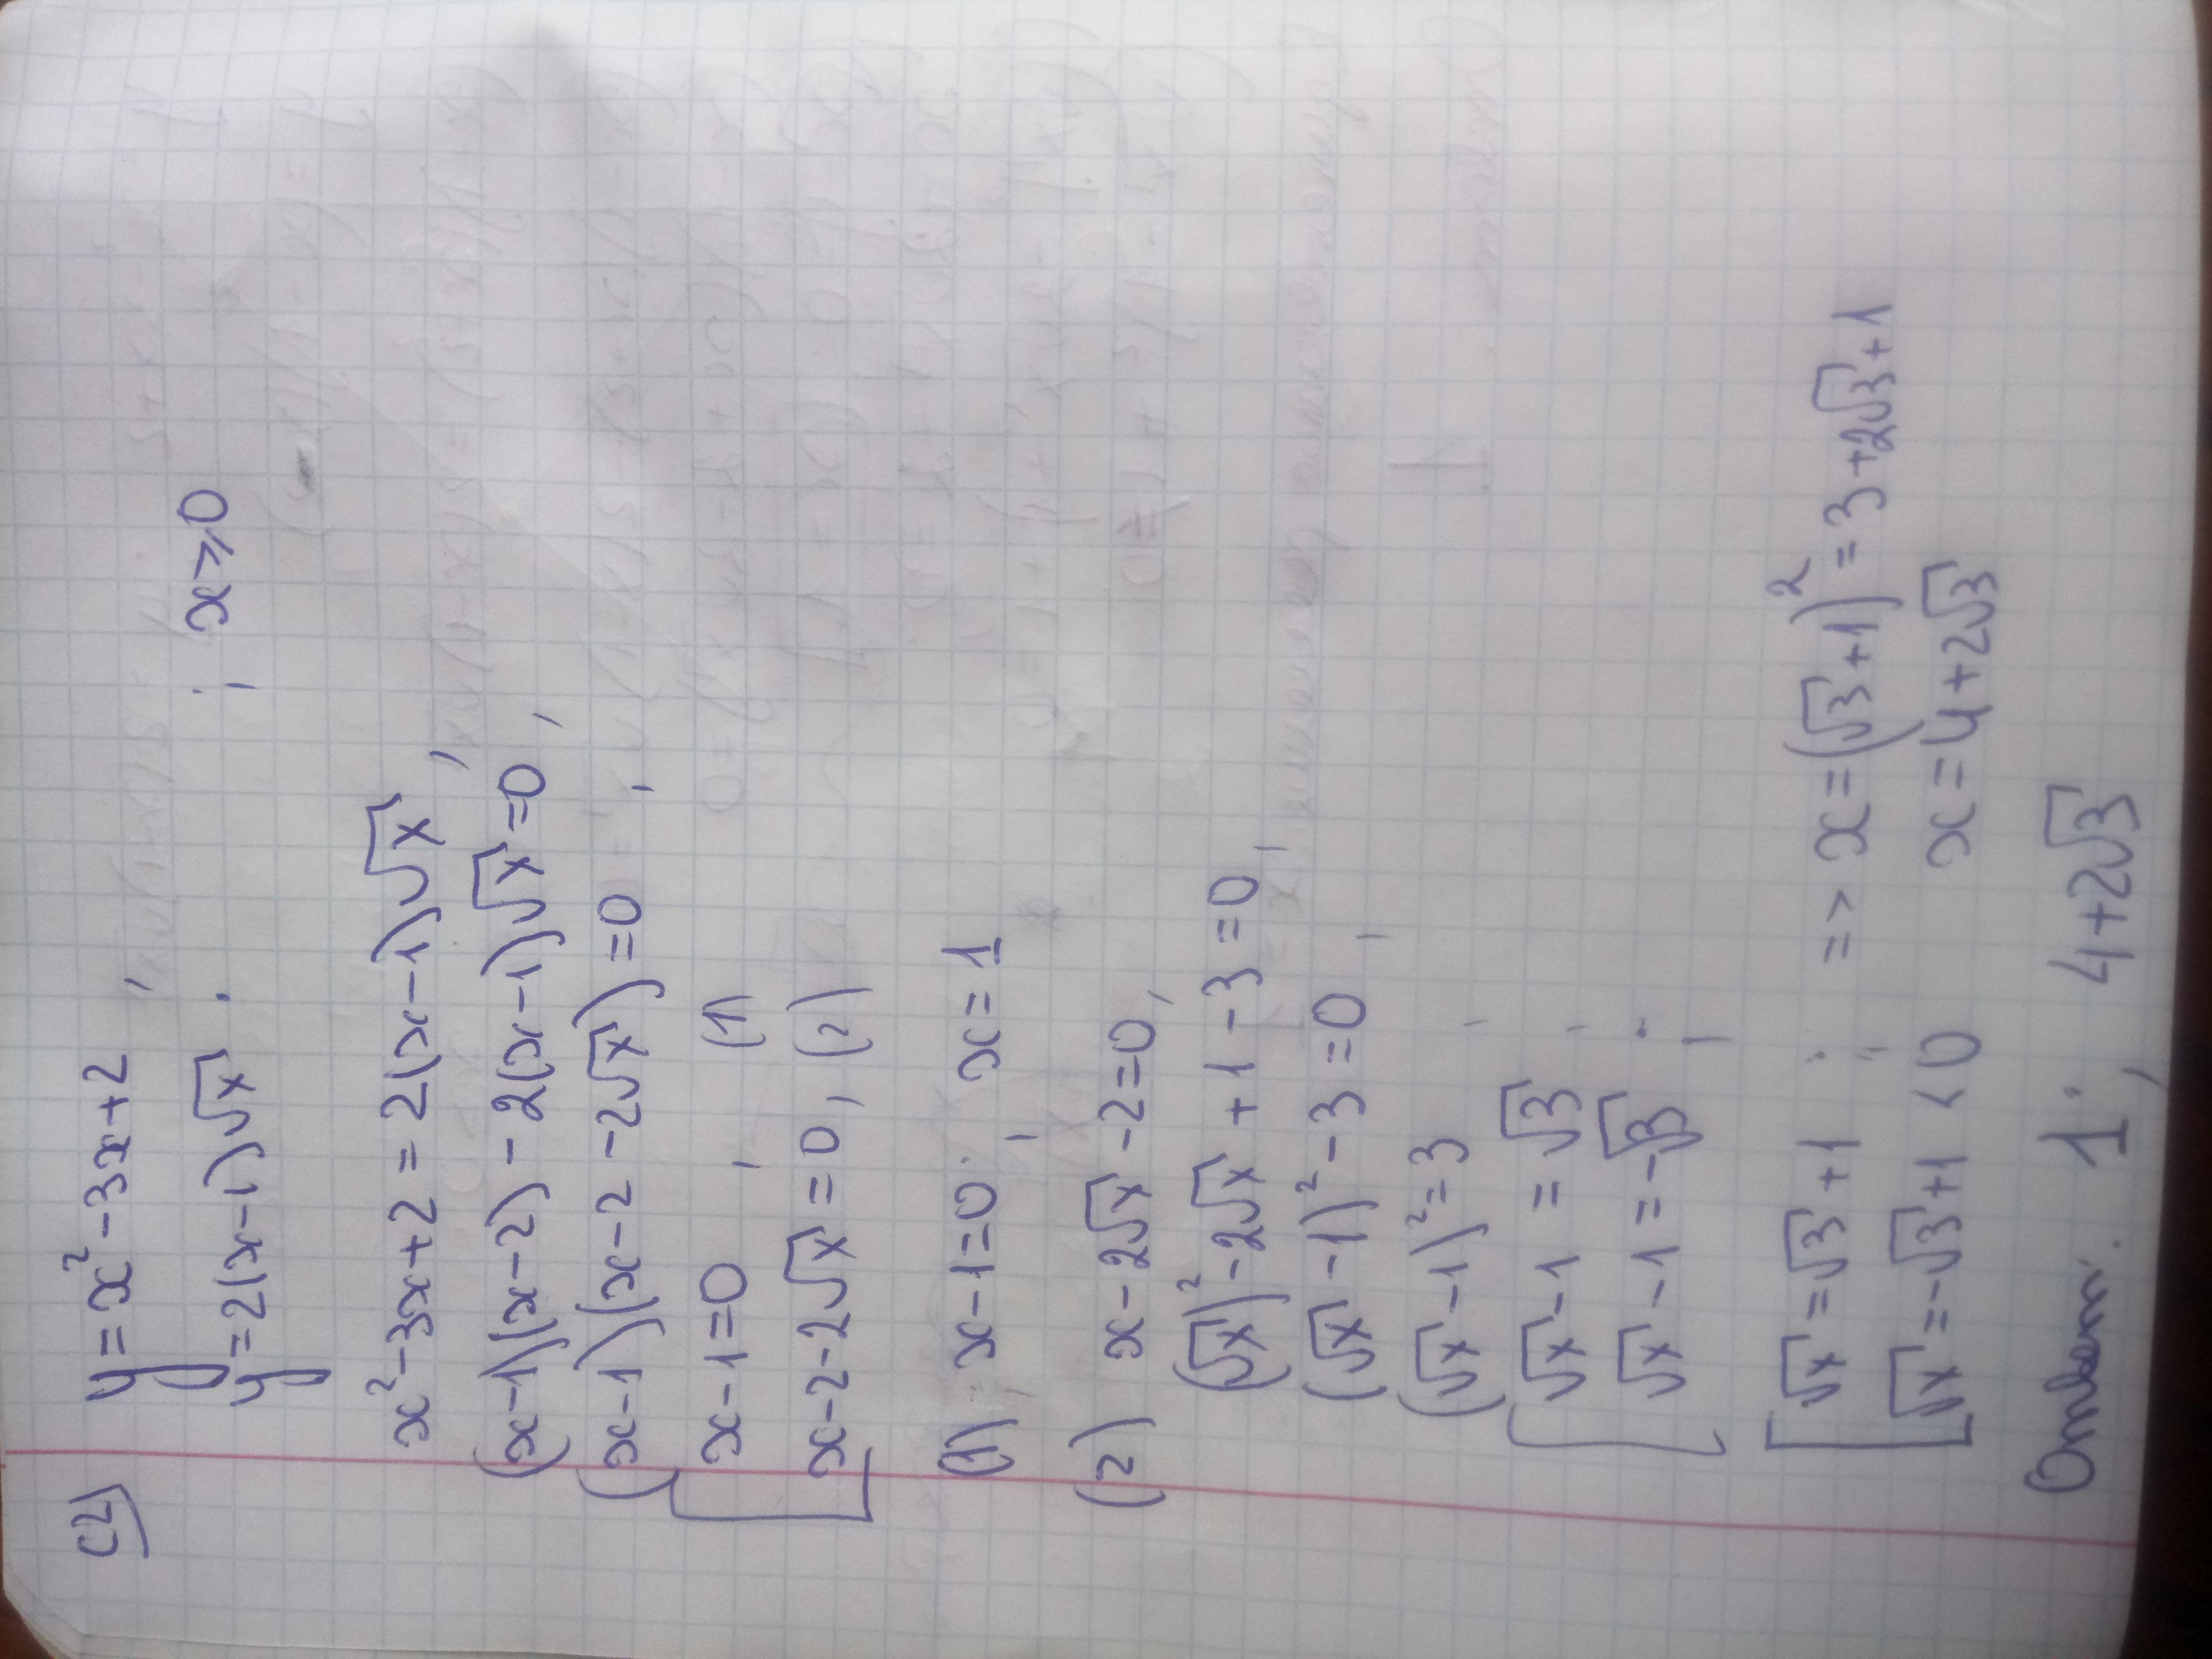 C2)
y=x²-3x+2,
y=2(x-1)√x. ; x⩾0
x²-3x+2=2(x-1)√x,
(x-1)(x-2)-2(x-1)√x=0,
(x-1)(x-2-2√x)=0,
[ x-1=0, (1)
x-2-2√x=0, (2)
(1) x-1=0; x=1
(2) x-2√x-2=0,
(√x)²-2√x+1-3=0,
(√x-1)²-3=0,
(√x-1)²=3,
[ √x-1=√3,
√x-1=-√3;
[ √x=√3+1; => x=(√3+1)²=3+2√3+1
√x=-√3+1<0 x=4+2√3
Ответ. 1; 4+2√3